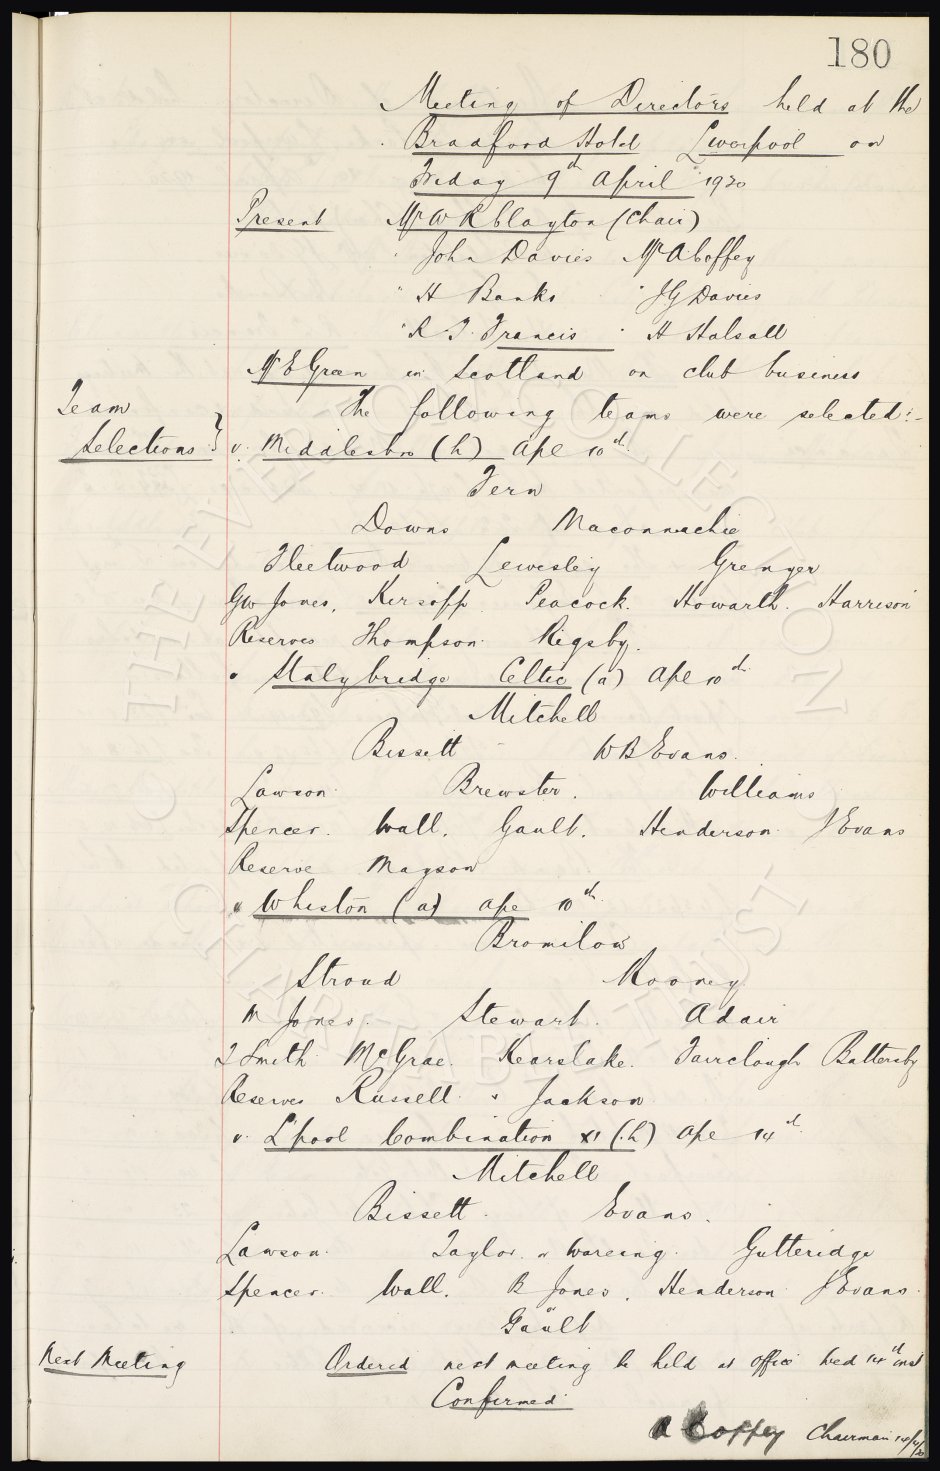 180
Meeting of Directors held at the
Bradford Hotel Liverpool on
Friday 9th April 1920
Present Mr W R Clayton (Chair)
" John Davies Mr A Coffey
" H Banks " J G Davies
" R T Francis " H Halsall
Mr E Green in Scotland on club business
Team The following teams were selected:-
Selections } v. Middlesbro (h) Apl 10th
Fern
Downs Maconnachie
Fleetwood Lewesley Grenyer
G W Jones, Kirsopp. Peacock. Howarth. Harrison
Reserves Thompson. Rigsby.
" Stalybridge Celtic (a) Apl 10th
Mitchell
Bissett W B Evans.
Lawson Brewster. Williams
Spencer. Wall. Gault. Henderson J Evans
Reserve Mayson
" Whiston (a) Apl 10th
Bromilow
Stroud Mooney
M Jones. Stewart. Adair
T Smith McGrae. Kearslake. Fairclough Battersby
Reserves Russell & Jackson
v. L'pool Combination XI (h) Apl 14th
Mitchell
Bissett. Evans.
Lawson. Taylor. or Wareing. Gutteridge
Spencer. Wall. B Jones. Henderson J Evans.
or
Gault
Next Meeting Ordered next meeting be held at office Wed 14th inst
Confirmed
A Coffey Chairman 14/4/20
© THE EVERTON COLLECTION
CHARITABLE TRUST